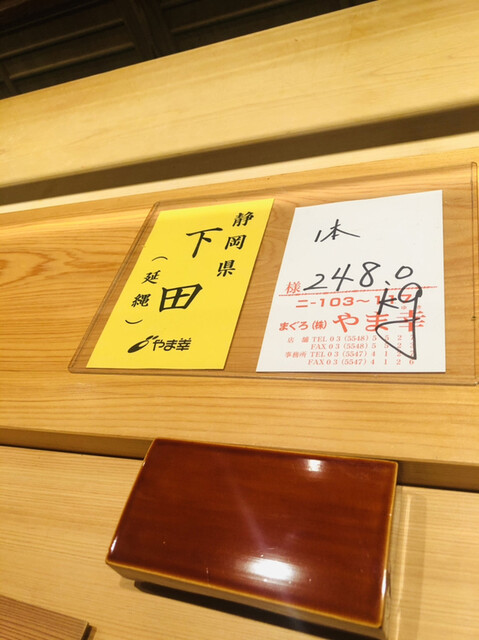 静岡県
下田
（延縄）
やま幸
1本
様 248.0
kg
ニ-103～
まぐろ(株) やま幸
店舗 TEL 03 (5548) 5 5 2
FAX 03 (5548) 5 5 2
事務所 TEL 03 (5547) 4 1 2
FAX 03 (5547) 4 1 2 6